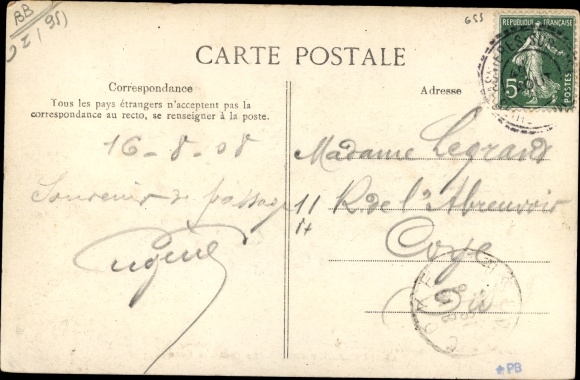 BB
655
REPUBLIQUE FRANÇAISE
5c
POSTES
CARTE POSTALE
Correspondance
Tous les pays étrangers n'acceptent pas la
correspondance au recto, se renseigner à la poste.
16-8-08
Souvenir de passage
Eugène
Adresse
Madame Legrand
11 R. de l'Abreuvoir
Coye
Oise
COYE
PB